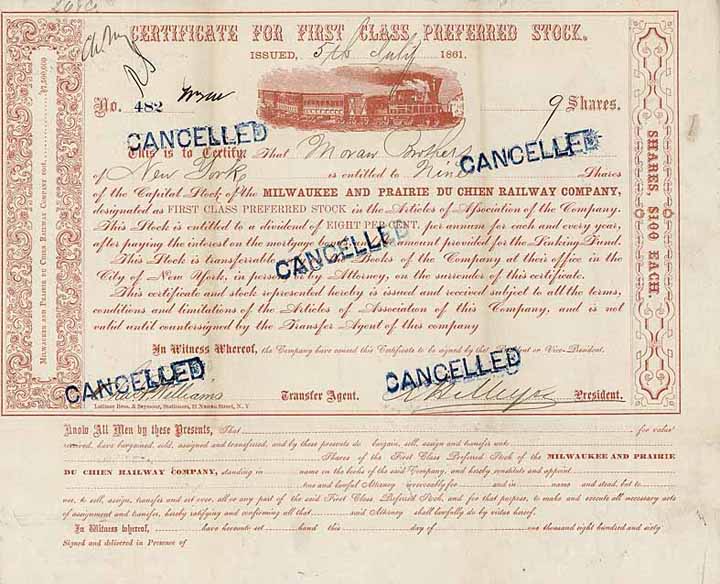 CERTIFICATE FOR FIRST CLASS PREFERRED STOCK.
ISSUED, 5th July 1861.
No. 482
9 Shares.
CANCELLED
CANCELLED
This is to Certify That Moran Brothers
of New York is entitled to Nine Shares
of the Capital Stock of the MILWAUKEE AND PRAIRIE DU CHIEN RAILWAY COMPANY,
designated as FIRST CLASS PREFERRED STOCK in the Articles of Association of the Company.
This Stock is entitled to a dividend of EIGHT PER CENT. per annum for each and every year,
after paying the interest on the mortgage amount provided for the Sinking Fund.
CANCELLED
This Stock is transferable Books of the Company at their office in the
City of New York, in person by Attorney, on the surrender of this certificate.
This certificate and stock represented hereby is issued and received subject to all the terms,
conditions and limitations of the Articles of Association of this Company, and is not
valid until countersigned by the Transfer Agent of this company
In Witness Whereof, the Company have caused this Certificate to be signed by their President or Vice-President.
CANCELLED
CANCELLED
Williams Transfer Agent. President.
Latimer Bros. & Seymour, Stationers, 21 Nassau Street, N. Y
MILWAUKEE AND PRAIRIE DU CHIEN RAILWAY COMPANY
SHARES, $100 EACH.
Know All Men by these Presents, That for value
received, have bargained, sold, assigned and transferred, and by these presents do bargain, sell, assign and transfer unto
Shares of the First Class Preferred Stock of the MILWAUKEE AND PRAIRIE
DU CHIEN RAILWAY COMPANY, standing in name on the books of the said Company, and hereby constitute and appoint
true and lawful Attorney irrevocably for and in name and stead, but to
use, to sell, assign, transfer and set over, all or any part of the said First Class Preferred Stock, and for that purpose, to make and execute all necessary acts
of assignment and transfer, hereby ratifying and confirming all that said Attorney shall lawfully do by virtue hereof.
In Witness whereof, have hereunto set hand this day of one thousand eight hundred and sixty
Signed and delivered in Presence of